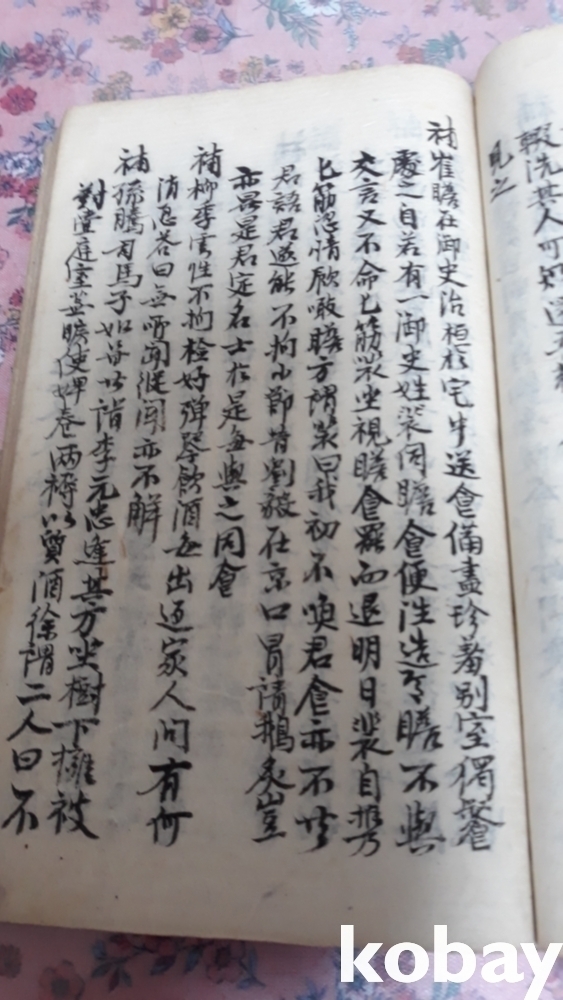 輟洗其人可知
見之
補崔瞻在御史治桓於宅中送食備盡珍羞別室獨飱
處之自若有一御史姓裴伺瞻食便往造焉瞻不與
交言又不命匕筯裴坐視瞻食罷而退明日裴自携
匕筯恣情飮啖瞻方謂裴曰我初不喚君食亦不共
君語君遂能不拘小節昔劉毅在京口冒請鵝炙豈
亦異是君定名士於是每與之同食
補柳季雲性不拘檢好彈琴飮酒每出返家人問有何
消息答曰無所聞縱聞亦不解
補孫騰司馬子如甞共詣李元忠逢其方坐樹下擁被
對壺庭室蕪曠使婢卷兩褥以質酒徐謂二人曰不
kobay